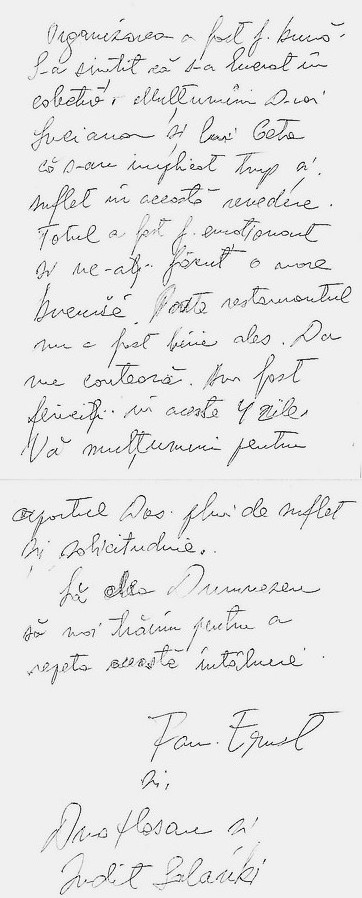 Organizarea a fost f. bună.
S-a simțit că s-a lucrat în
colectiv. Mulțumim D-nei
Luciana și lui Geta
că s-au implicat trup și
suflet în această revedere.
Totul a fost f. emoționant
și ne-ați făcut o mare
bucurie. Poate restaurantul
nu a fost bine ales. Da
nu contează. Am fost
fericiți în aceste 4 zile.
Vă mulțumim pentru
aportul Dvs. plin de suflet
și solicitudine.
Să dea Dumnezeu
să mai trăim pentru a
repeta această întâlnire.
Fam. Ernst
și,
Dna și
Judit